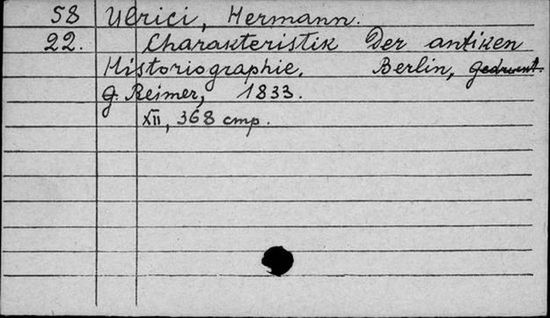 58 Ulrici, Hermann.
22. Charakteristik Der antiken
Historiographie. Berlin, gedruckt.
G. Reimer, 1833.
XII, 368 стр.